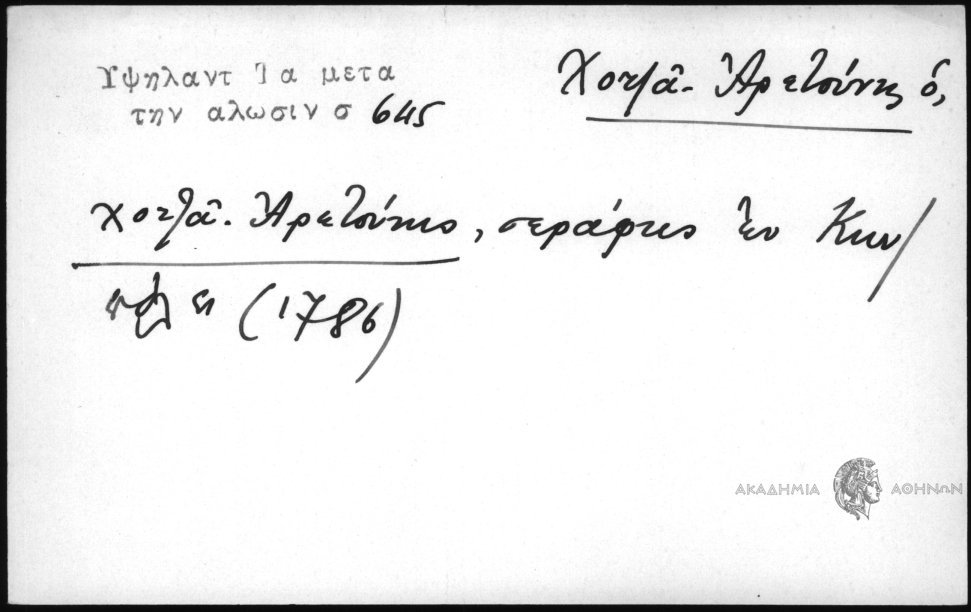 Υψηλαντ Τα μετα
την αλωσιν σ 645
Χοτζᾶ- Ἀρετούνης ὁ,
χοτζᾶ- Ἀρετούνης, σεράφης ἐν Κων/
πόλει (1786)
ΑΚΑΔΗΜΙΑ ΑΘΗΝΩΝ